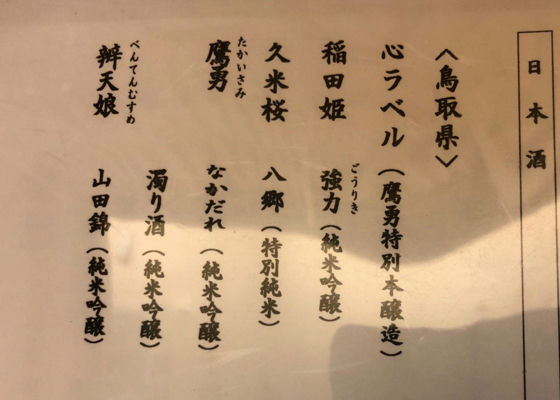 日本酒
〈鳥取県〉
心ラベル（鷹勇特別本醸造）
稲田姫 強力（純米吟醸）
ごうりき
久米桜 八郷（特別純米）
鷹勇 なかだれ（純米吟醸）
たかいさみ
濁り酒（純米吟醸）
辨天娘 山田錦（純米吟醸）
べんてんむすめ